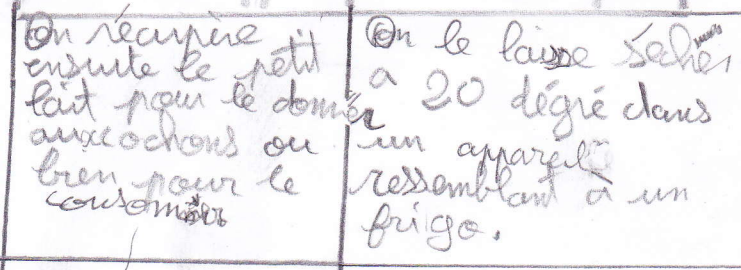 On récupère
ensuite le petit
lait pour le donner
aux cochons ou
bien pour le
consommer
On le laisse sécher
a 20 dégré dans
un appareil
ressemblant à un
frigo.